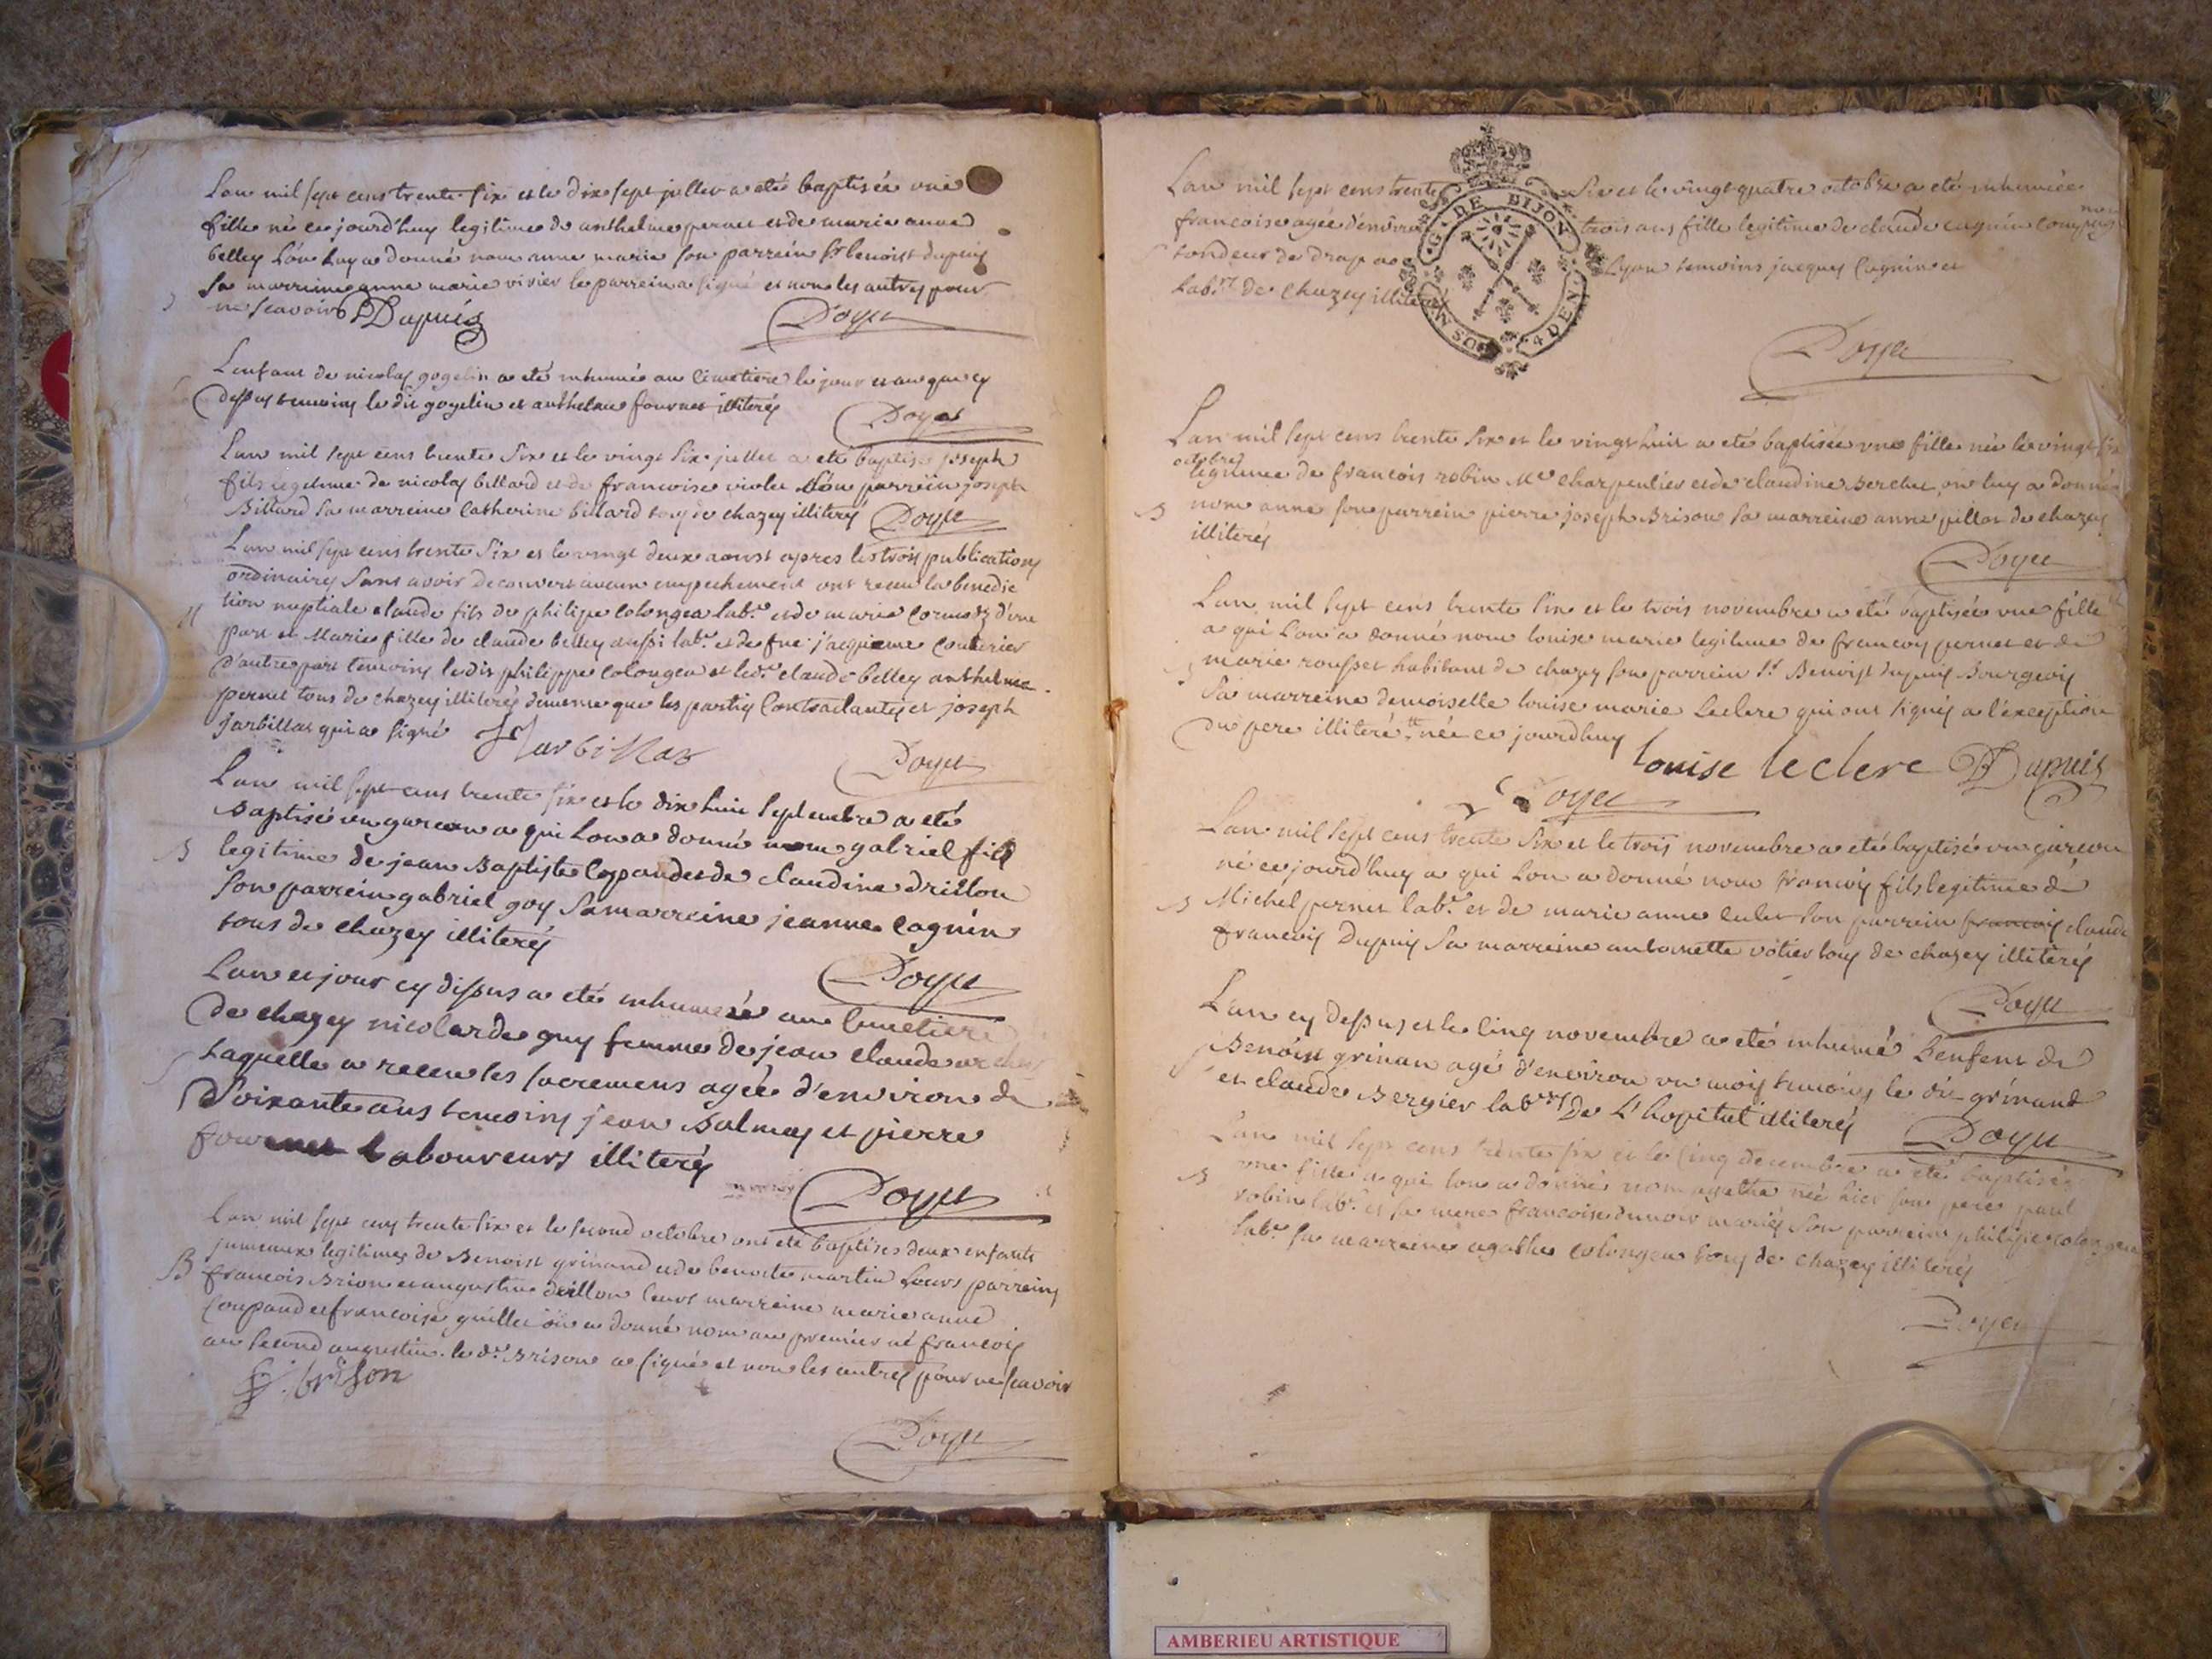 Lan mil sept cens trente six et le dix sept juillet a eté baptisée une
fille née ce jourd'huy legitime de anthelme pernet et de marie anne
belley l'on luy a donné nom anne marie son parrein Sr benoist dupuis
sa marreine anne marie vivier le parrein a signé et non les autres pour
ne scavoir BDupuis Doyu
Lenfant de nicolas gogelin a eté inhumé au cimetiere le jour et an que cy
dessus temoins le dit gogelin et anthelme fournet illiterés
Doyu
Lan mil sept cens trente six et le vingt six juillet a eté baptisé joseph
fils legitime de nicolas billard et de francoise violet son parrein joseph
Billard sa marreine Catherine billard tous de chazey illiterés Doyu
Lan mil sept cens trente six et le vingt deux aoust apres les trois publications
ordinaires sans avoir decouvert aucun empechement ont receu la benedic
M tion nuptiale claude fils de philipe colongea labr. et de marie d'une
part et Marie fille de claude belley aussi labr. et de fue jacqueme couturier
d'autre part temoins ledit philippe colongea et led. claude belley anthelme
pernet tous de chazey illiterés de meme que les partis contractantes et joseph
jarbillat qui a signé Jarbillat Doyu
Lan mil sept cens trente six et le dix huit septembre a eté
Baptisé un garcon a qui lon a donné nom gabriel fils
B legitime de jean Baptiste et de claudine drillon
son parrein gabriel goy sa marreine jeanne cagnin
tous de chazey illiterés
Doyu
Lan et jour cy dessus a eté inhumée au cimetiere
de chazey nicolarde guy femme de jean claude
S laquelle a receu les sacremens agée d'environ de
soixante ans temoins jean Balmay et pierre
fournet laboureurs illiterés
Doyu
Lan mil sept cens trente six et le second octobre ont eté baptises deux enfants
jumeaux legitimes de Benoist grinand et de benoite martin leurs parreins
B francois Brison et augustin drillon leurs marreine marie anne
coupand et francoise guillet on a donné nom au premier né francois
au second augustin. le dt. Brison a signé et non les autres pour ne scavoir
f. brison
Doyu
Lan mil sept cens trente six et le vingt quatre octobre a eté inhumée
francoise agée d'environ trois ans fille legitime de claude cagnin
S tondeur de drap a Lyon temoins jacques Cagnin et
labrs. de chazey illiterés
G. DE DIJON
4 DEN
Doyu
Lan mil sept cens trente six et le vingt huit a eté baptisée une fille née le vingt six
octobre
legitime de francois robin Me charpentier et de claudine Berchet, on luy a donné
B nom anne son parrein pierre joseph Brison sa marreine anne pillot de chazey
illiterés
Doyu
Lan mil sept cens trente six et le trois novembre a eté baptisée une fille
a qui Lon a donné nom louise marie legitime de francois pernet et de
marie rousset habitant de chazey son parrein Sr Benoist dupuis Bourgeois
sa marreine demoiselle louise marie Leclerc qui ont signés a l'exception
du pere illiteré. née ce jourdhuy
louise leclerc BDupuis
Doyu
Lan mil sept cens trente six et le trois novembre a eté baptisé un garcon
né ce jourd'huy a qui Lon a donné nom francois fils legitime de
B Michel pernet labr. et de marie anne son parrein francois claude
francois Dupuis sa marreine antoinette vôtier tous de chazey illiterés
Doyu
Lan cy dessus et le cinq novembre a eté inhumé Lenfent de
S Benoist grinan agé d'environ un mois temoins le dit grinand
et claude Bergier labrs de L'hopital illiterés Doyu
Lan mil sept cens trente six et le cinq decembre a eté baptisée
B une fille a qui lon a donné nom agathe née hier son pere paul
robin labr. et sa mere francoise mariés son parrein philipe colongea
labr. sa marreine agathe colongea tous de chazey illiterés
Doyu
AMBERIEU ARTISTIQUE